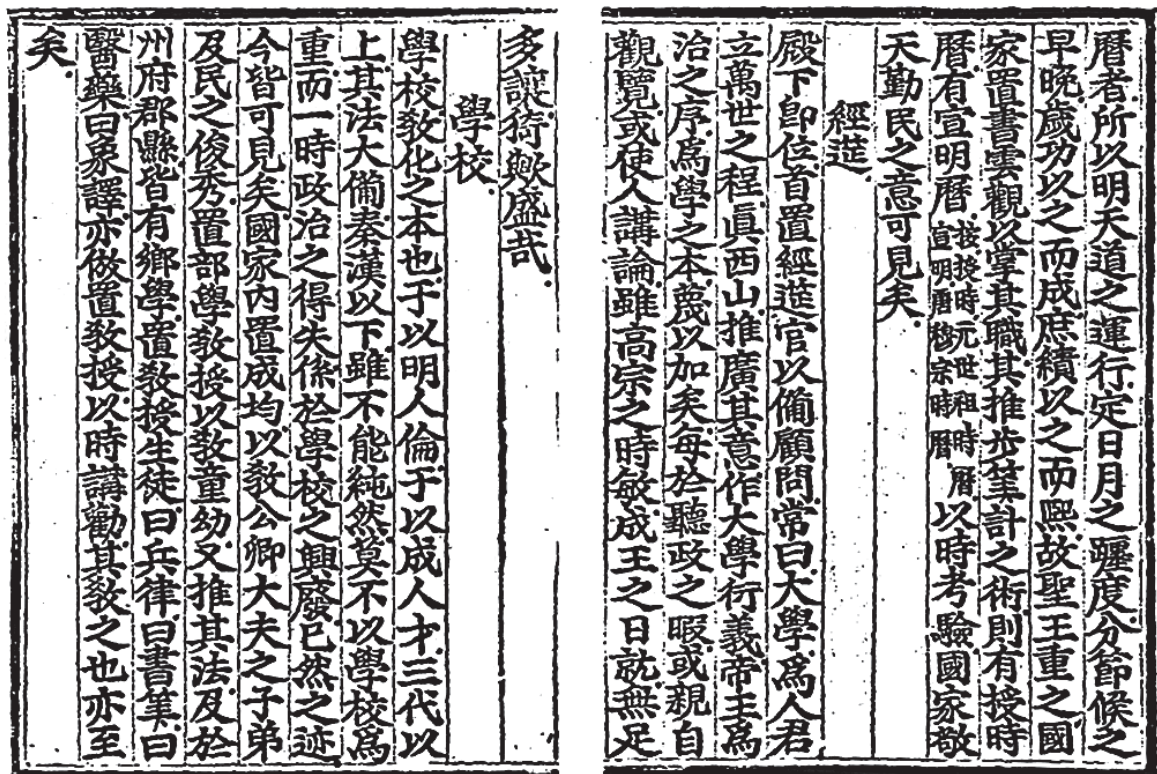 曆者所以明天道之運行定日月之躔度分節候之
早晚歲功以之而成庶績以之而熙故聖王重之國
家置書雲觀以掌其職其推步筭計之術則有授時
曆有宣明曆按授時元世祖時曆宣明唐穆宗時曆以時考驗國家敬
天勤民之意可見矣
經筵
殿下卽位首置經筵官以備顧問常曰大學爲人君
立萬世之程眞西山推廣其意作大學衍義帝王爲
治之序爲學之本蔑以加矣每於聽政之暇或親自
觀覽或使人講論雖高宗之時敏成王之日就無足
多讓猗歟盛哉
學校
學校敎化之本也于以明人倫于以成人才三代以
上其法大備秦漢以下雖不能純然莫不以學校爲
重而一時政治之得失係於學校之興廢已然之迹
今皆可見矣國家內置成均以敎公卿大夫之子弟
及民之俊秀置部學敎授以敎童幼又推其法及於
州府郡縣皆有鄕學置敎授生徒曰兵律曰書筭曰
醫藥曰象譯亦倣置敎授以時講勸其敎之也亦至
矣